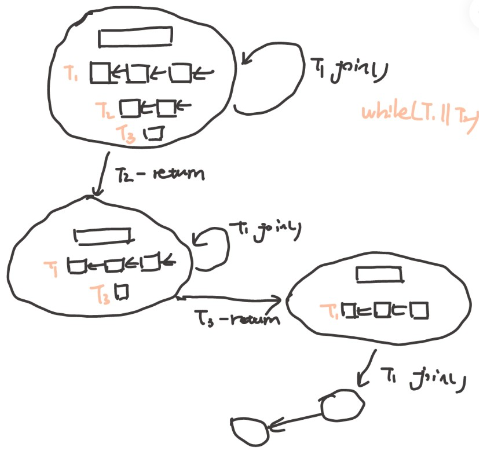 T₁
T₂
T₃
T₁ join()
while(T₁ || T₂)
T₂-return
T₁
T₃
T₁ join()
T₃-return
T₁
T₁ join()